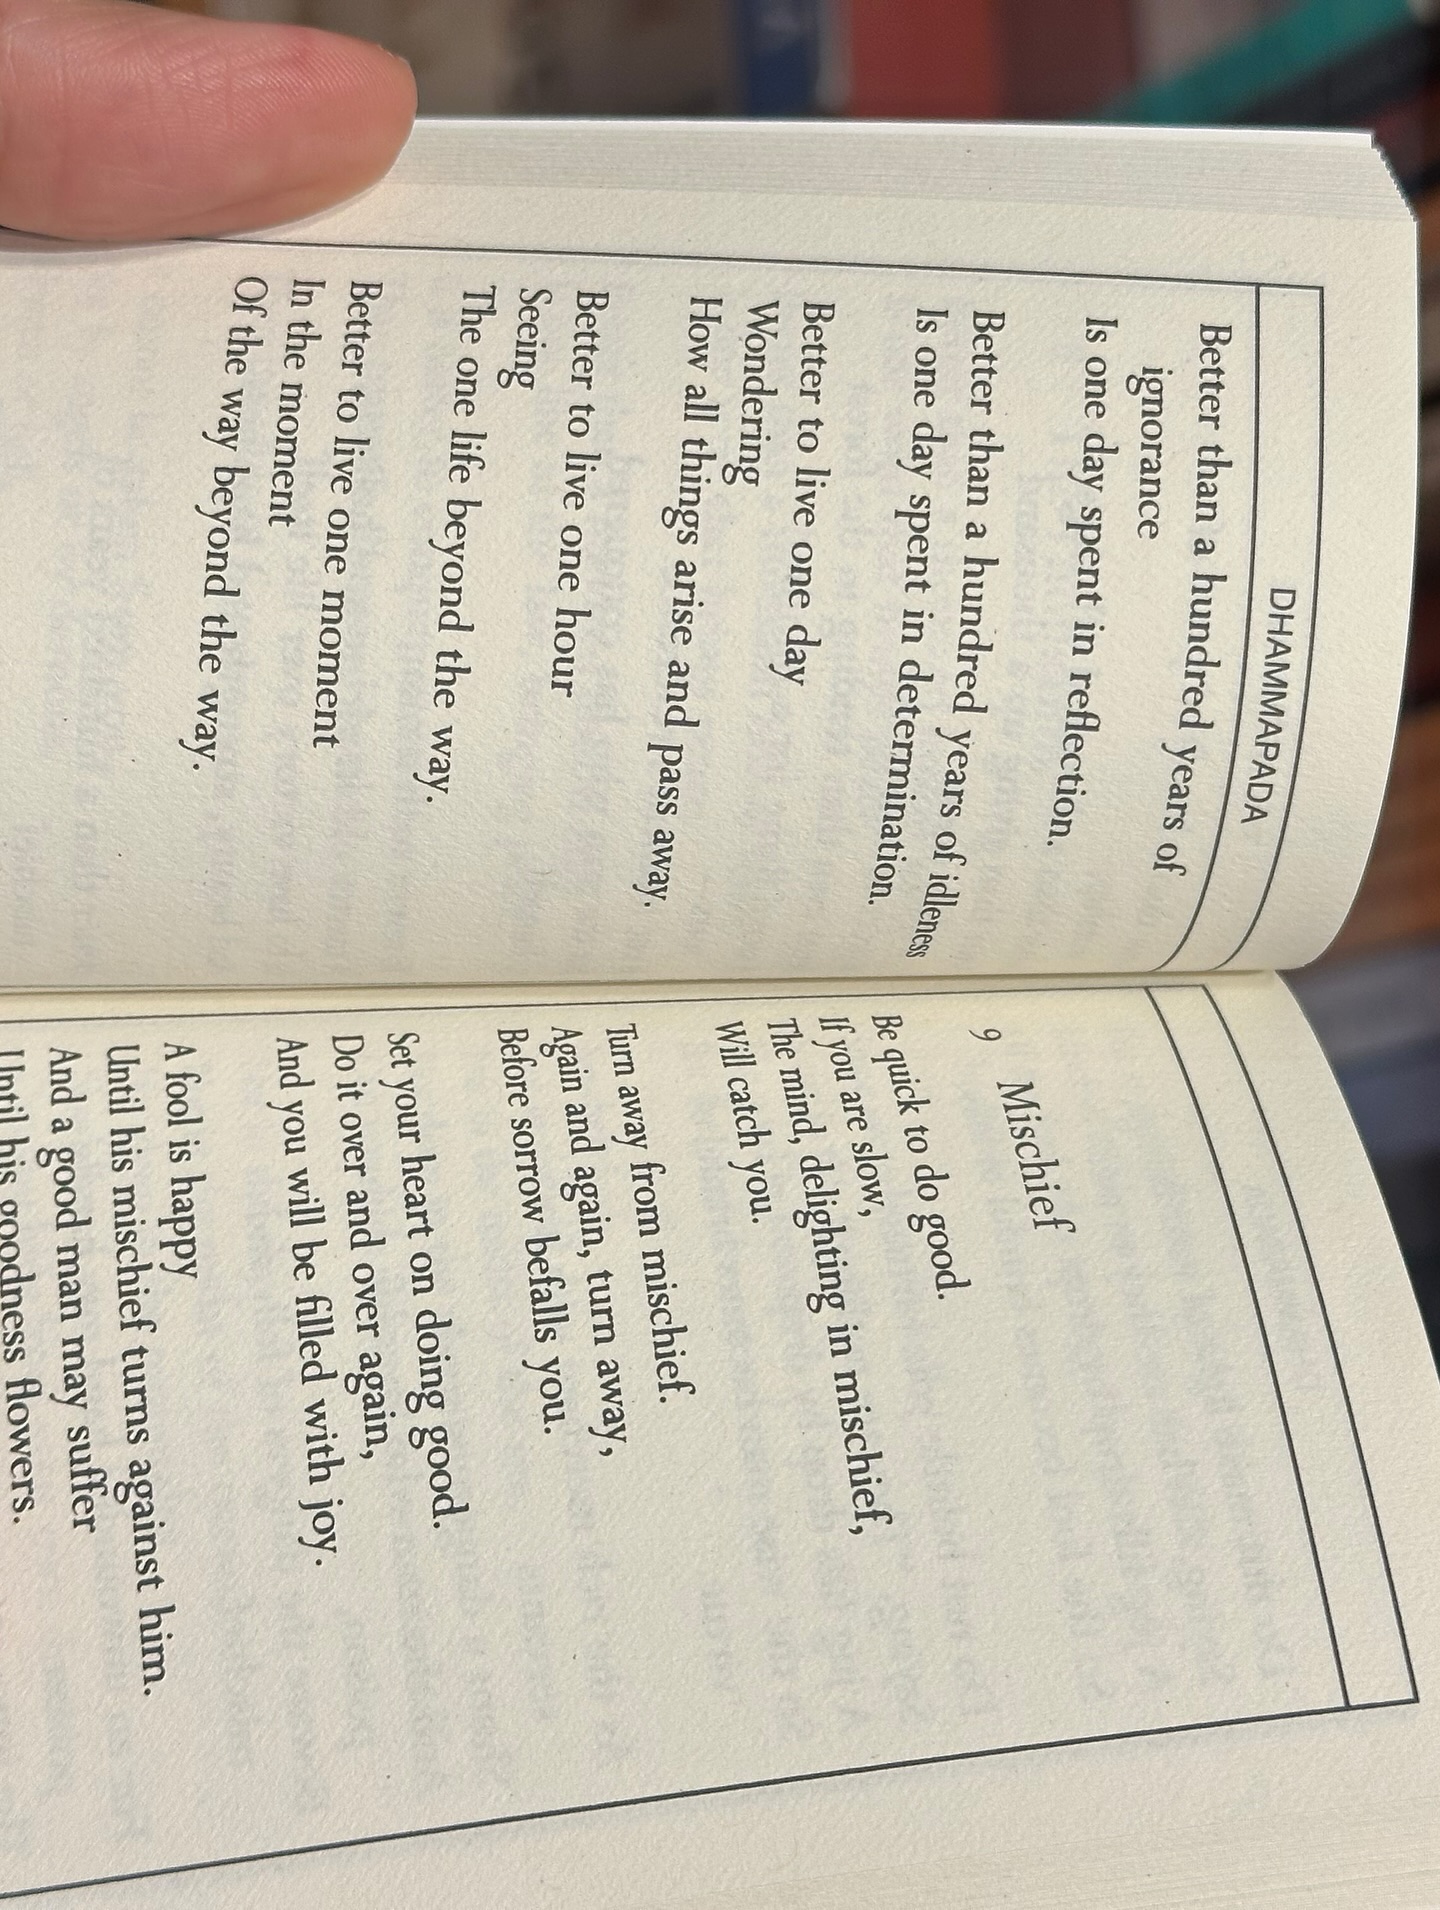 DHAMMAPADA
Better than a hundred years of
ignorance
Is one day spent in reflection.
Better than a hundred years of idleness
Is one day spent in determination.
Better to live one day
Wondering
How all things arise and pass away.
Better to live one hour
Seeing
The one life beyond the way.
Better to live one moment
In the moment
Of the way beyond the way.
9 Mischief
Be quick to do good.
If you are slow,
The mind, delighting in mischief,
Will catch you.
Turn away from mischief.
Again and again, turn away,
Before sorrow befalls you.
Set your heart on doing good.
Do it over and over again,
And you will be filled with joy.
A fool is happy
Until his mischief turns against him.
And a good man may suffer
Until his goodness flowers.